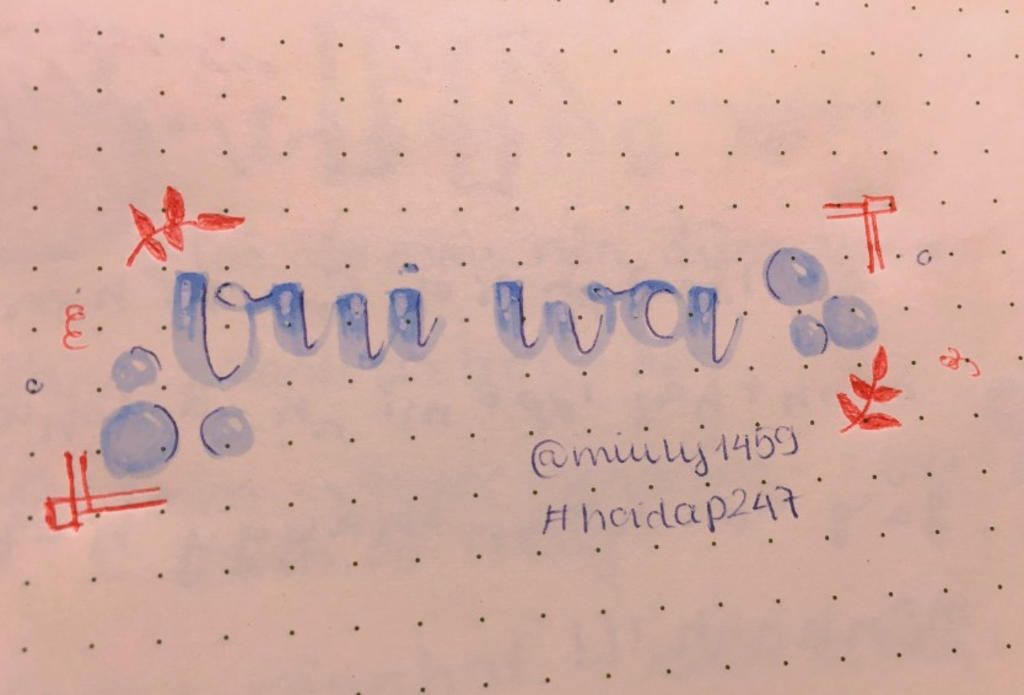 vui wa
@miuly1459
#hoidap247